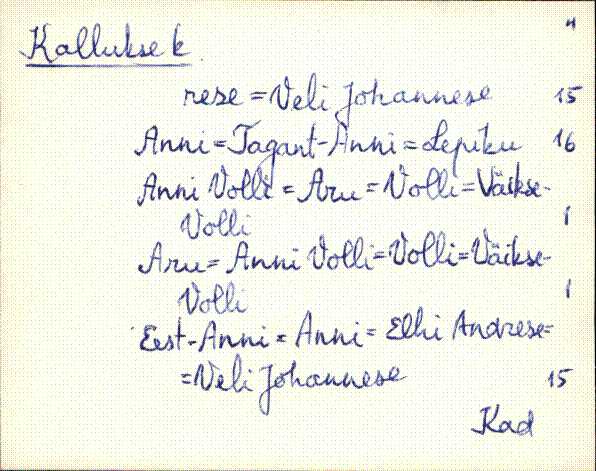 4
Kallukse k.
rese = Veli Johannese 15
Anni = Tagant-Anni = Lepiku 16
Anni Volli = Aru = Volli = Väikse-
Volli 1
Aru = Anni Volli = Volli = Väikse-
Volli 1
Eest-Anni = Anni = Elhi Andrese =
= Veli Johannese 15
Kad